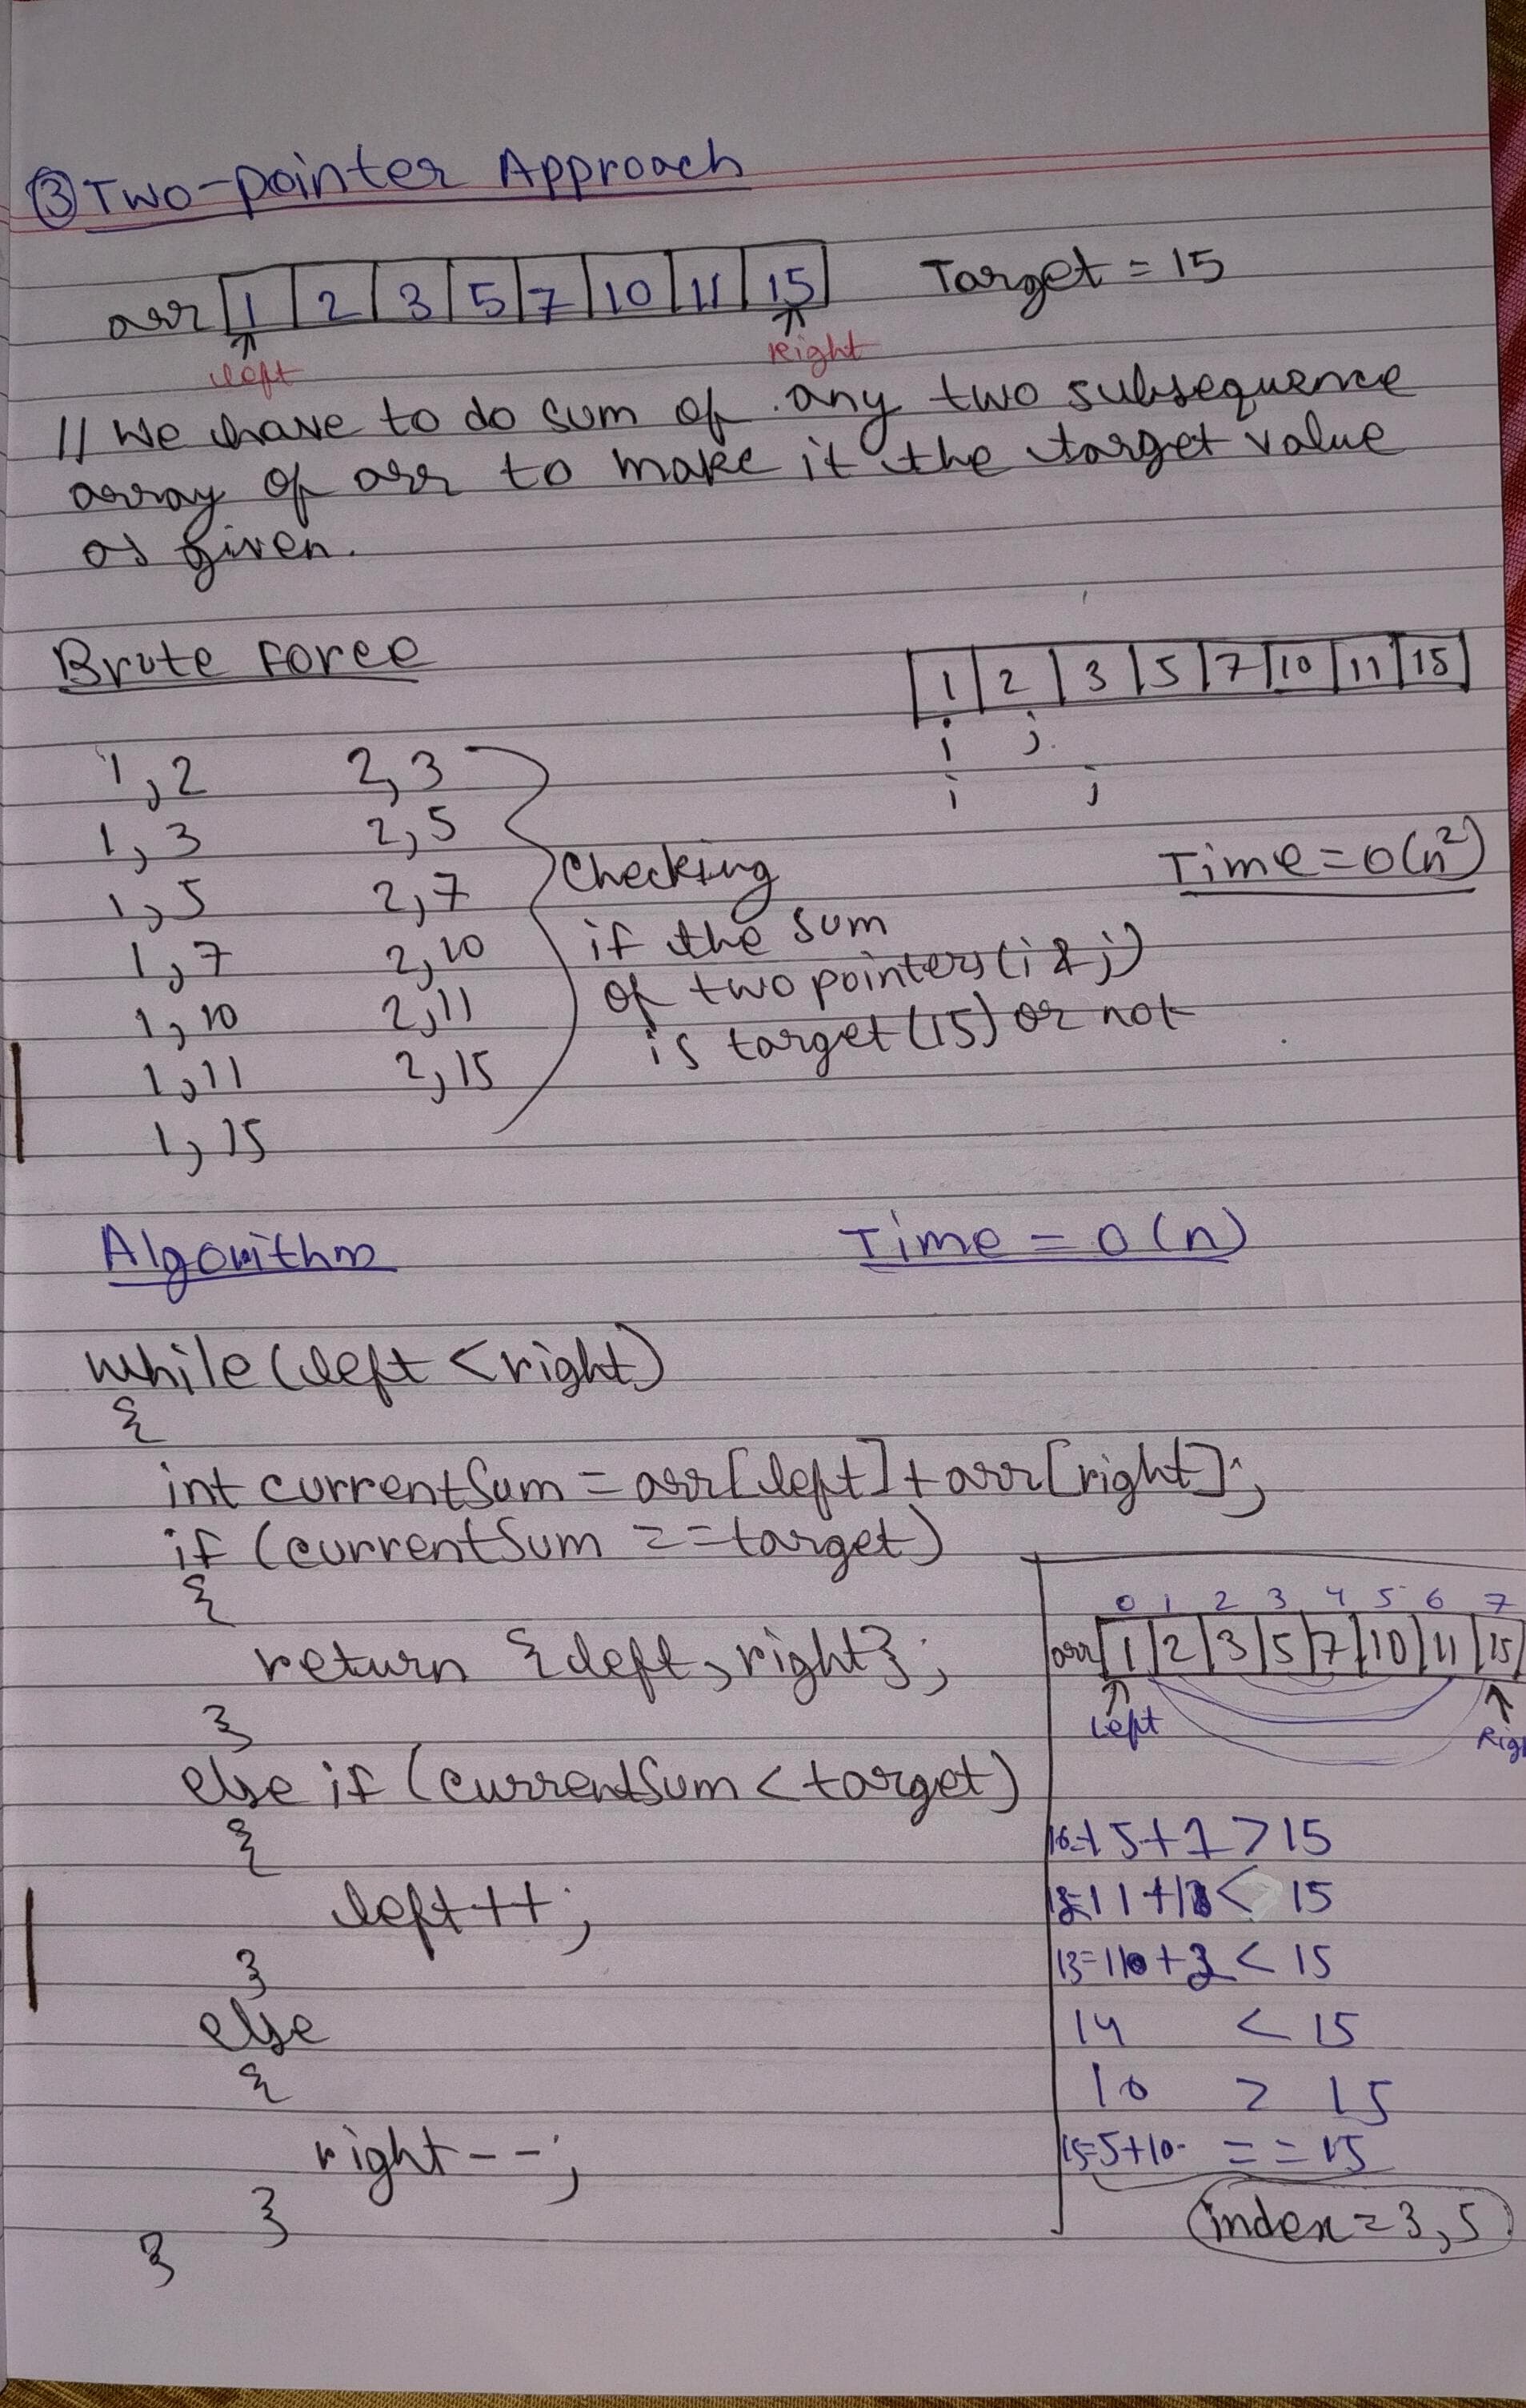 ③ Two-pointer Approach
arr 1 2 3 5 7 10 11 15 Target = 15
left right
// We have to do sum of any two subsequence
array of arr to make it the target value
as given.
Brute Force
1 2 3 5 7 10 11 15
i j
i j
1,2 2,3
1,3 2,5
1,5 2,7
1,7 2,10
1,10 2,11
1,11 2,15
1,15
Checking
if the sum
of two pointers (i & j)
is target (15) or not
Time = O(n²)
Algorithm Time = O(n)
while (left < right)
{
int currentSum = arr[left] + arr[right];
if (currentSum == target)
{
return {left, right};
}
else if (currentSum < target)
{
left++;
}
else
{
right--;
}
}
0 1 2 3 4 5 6 7
arr 1 2 3 5 7 10 11 15
Left Righ
16=15+1 > 15
< 15
< 15
14 < 15
> 15
15=5+10 == 15
index = 3, 5